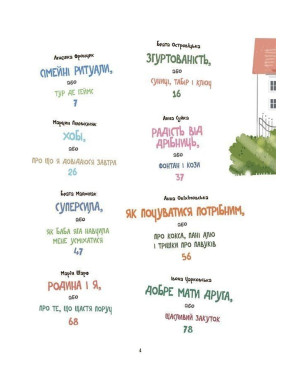 СІМЕЙНІ РИТУАЛИ,
АБО
ТУР ДЕ ГЕЙМС
7
Беата Островіцька
ЗГУРТОВАНІСТЬ,
АБО
СУНИЦІ, ТАБІР І КЛЮЧ
16
Марцін
ХОБІ,
АБО
ПРО ЩО Я ДОВІДАЛОСЯ ЗАВТРА
26
Анна
РАДІСТЬ ВІД
ДРІБНИЦЬ,
АБО
ФОНТАН І КОЗИ
37
Беата
СУПЕРСИЛА,
АБО
ЯК БАБА ЯГА НАВЧИЛА
МЕНЕ УСМІХАТИСЯ
47
Анна
ЯК ПОЧУВАТИСЯ ПОТРІБНИМ,
АБО
ПРО КОКСА, ПАНІ АЛЮ
І ТРІШКИ ПРО ПАВУКІВ
56
Марія
РОДИНА І Я,
АБО
ПРО ТЕ, ЩО ЩАСТЯ ПОРУЧ
68
ДОБРЕ МАТИ ДРУГА,
АБО
ЩАСЛИВИЙ ЗАКУТОК
78
4